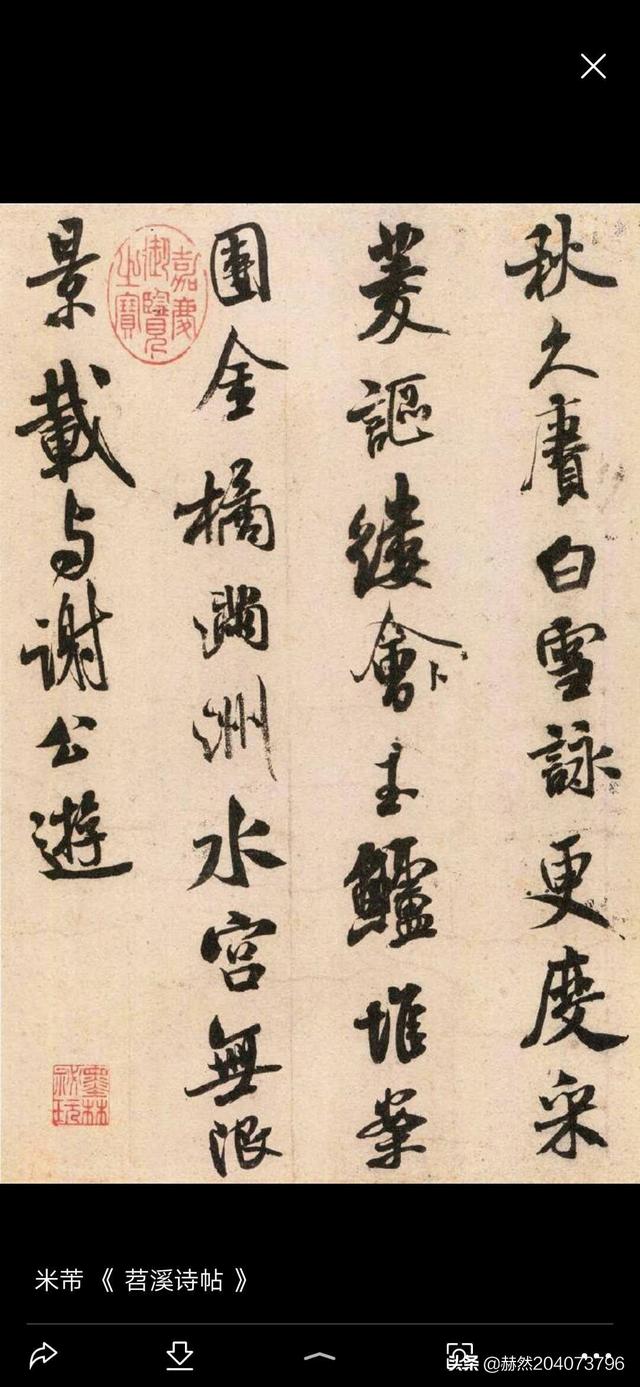 秋久賡白雪詠更度采
菱謳縷會玉鱸堆案
團金橘滿洲水宮無限
景載与謝公遊
嘉慶御覽之寶
墨林祕玩
米芾 《 苕溪诗帖 》
头条 @赫然204073796